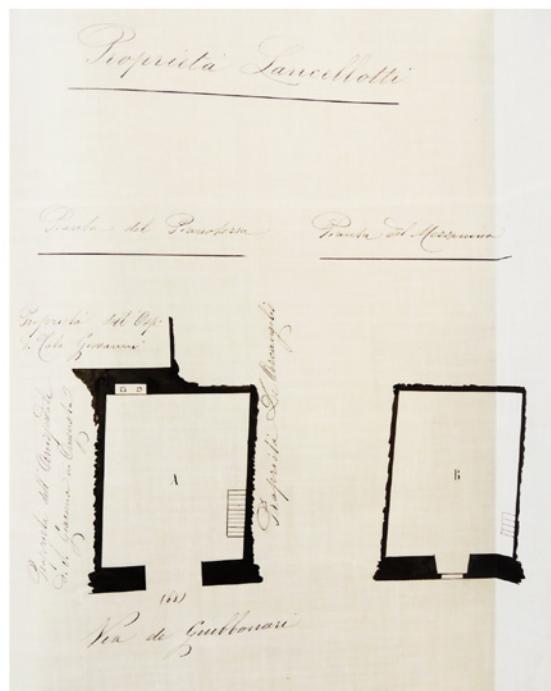 Proprietà Lancellotti
Pianta del Pianoterra
Pianta del Mezzanino
Proprietà dell'Osp:
di Tata Giovanni
Proprietà dell'Arcispedale
di S. Giacomo in
Proprietà De Arcangelis
A
B
(68)
Via de Giubbonari